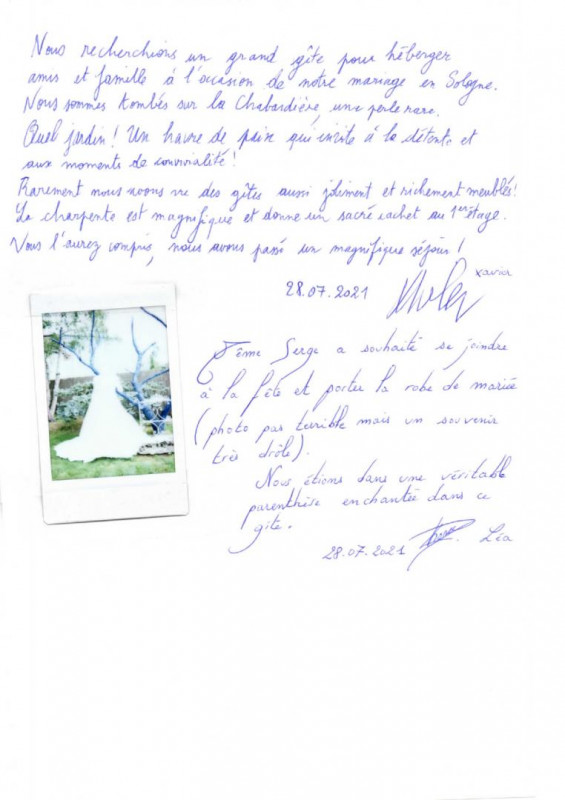 Nous recherchions un grand gîte pour héberger
amis et famille à l'occasion de notre mariage en Sologne.
Nous sommes tombés sur la Chabardière, une perle rare.
Quel jardin! Un havre de paix qui invite à la détente et
aux moments de convivialité!
Rarement nous avons vu des gîtes aussi joliment et richement meublés!
La charpente est magnifique et donne un sacré cachet au 1er étage.
Vous l'aurez compris, nous avons passé un magnifique séjour!
28.07.2021 Xavier
ême Serge a souhaité se joindre
à la fête et porter la robe de mariée
(photo pas terrible mais un souvenir
très drôle).
Nous étions dans une véritable
parenthèse enchantée dans ce
gîte.
28.07.2021 Léa